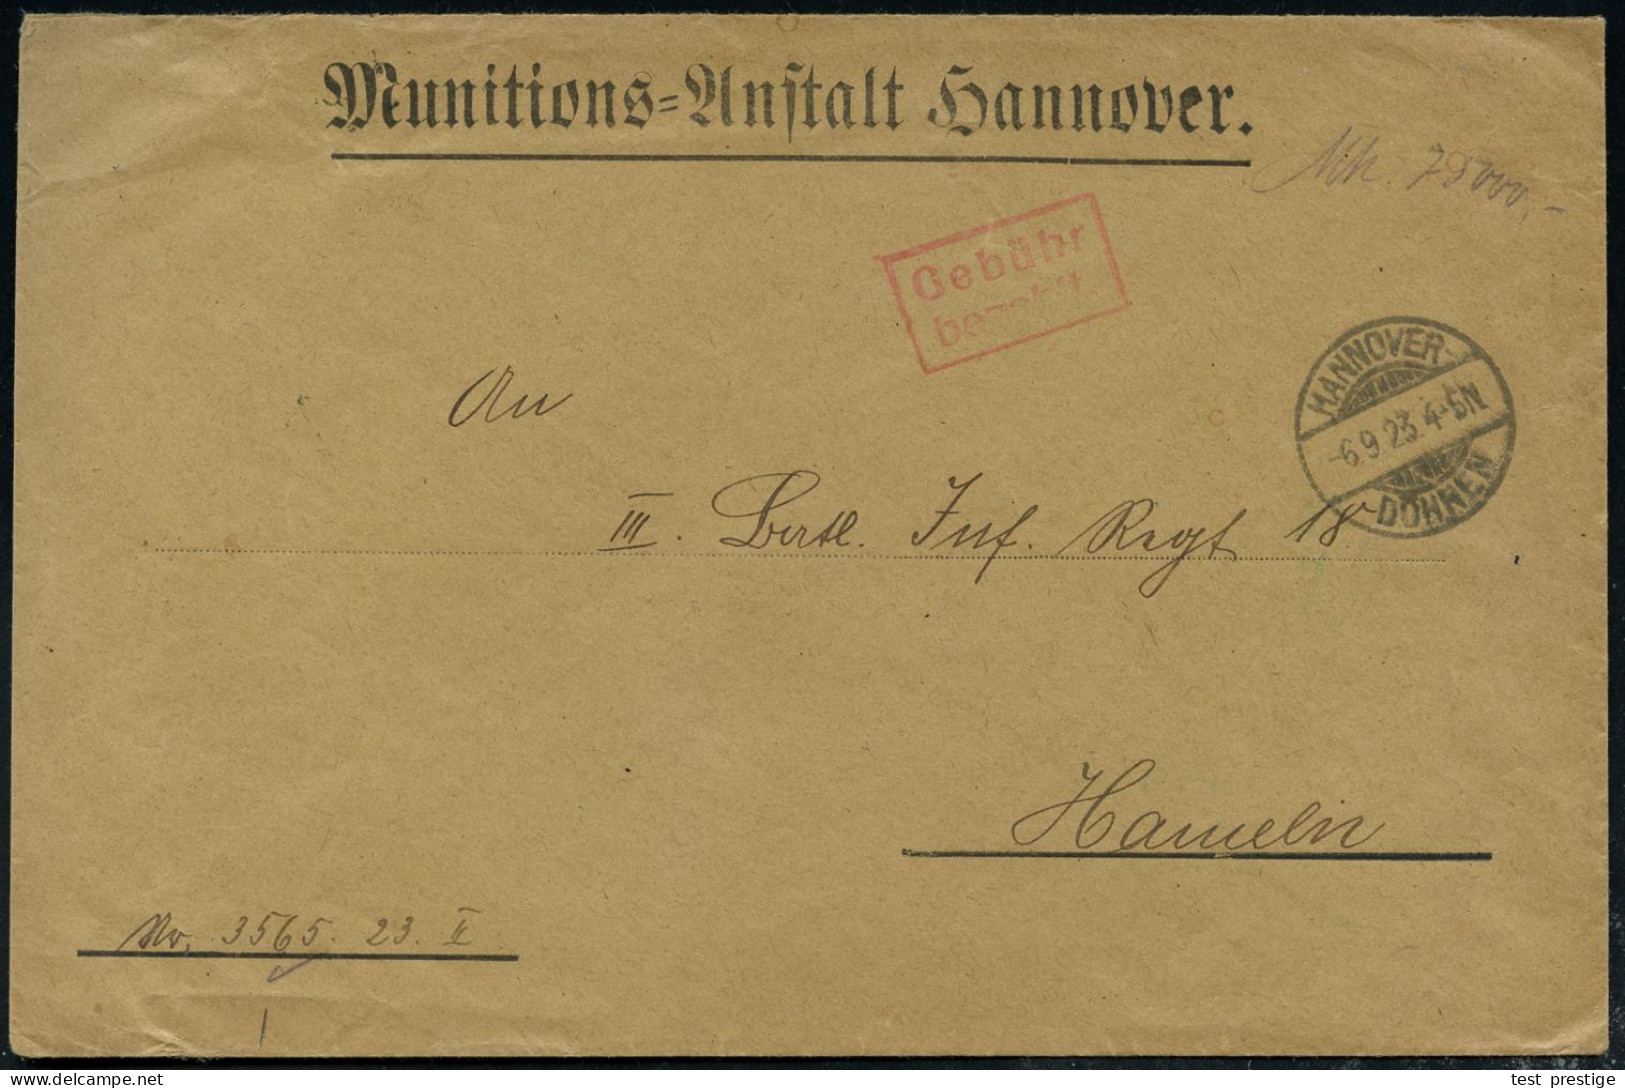 Munitions-Anstalt Hannover.
Mk. 75000.-
Gebühr
bezahlt
HANNOVER-
-6.9.23.4-5N.
DÖHREN
An
III. Batl. Inf. Regt 18
Hameln
No. 3565. 23. II
test_prestige